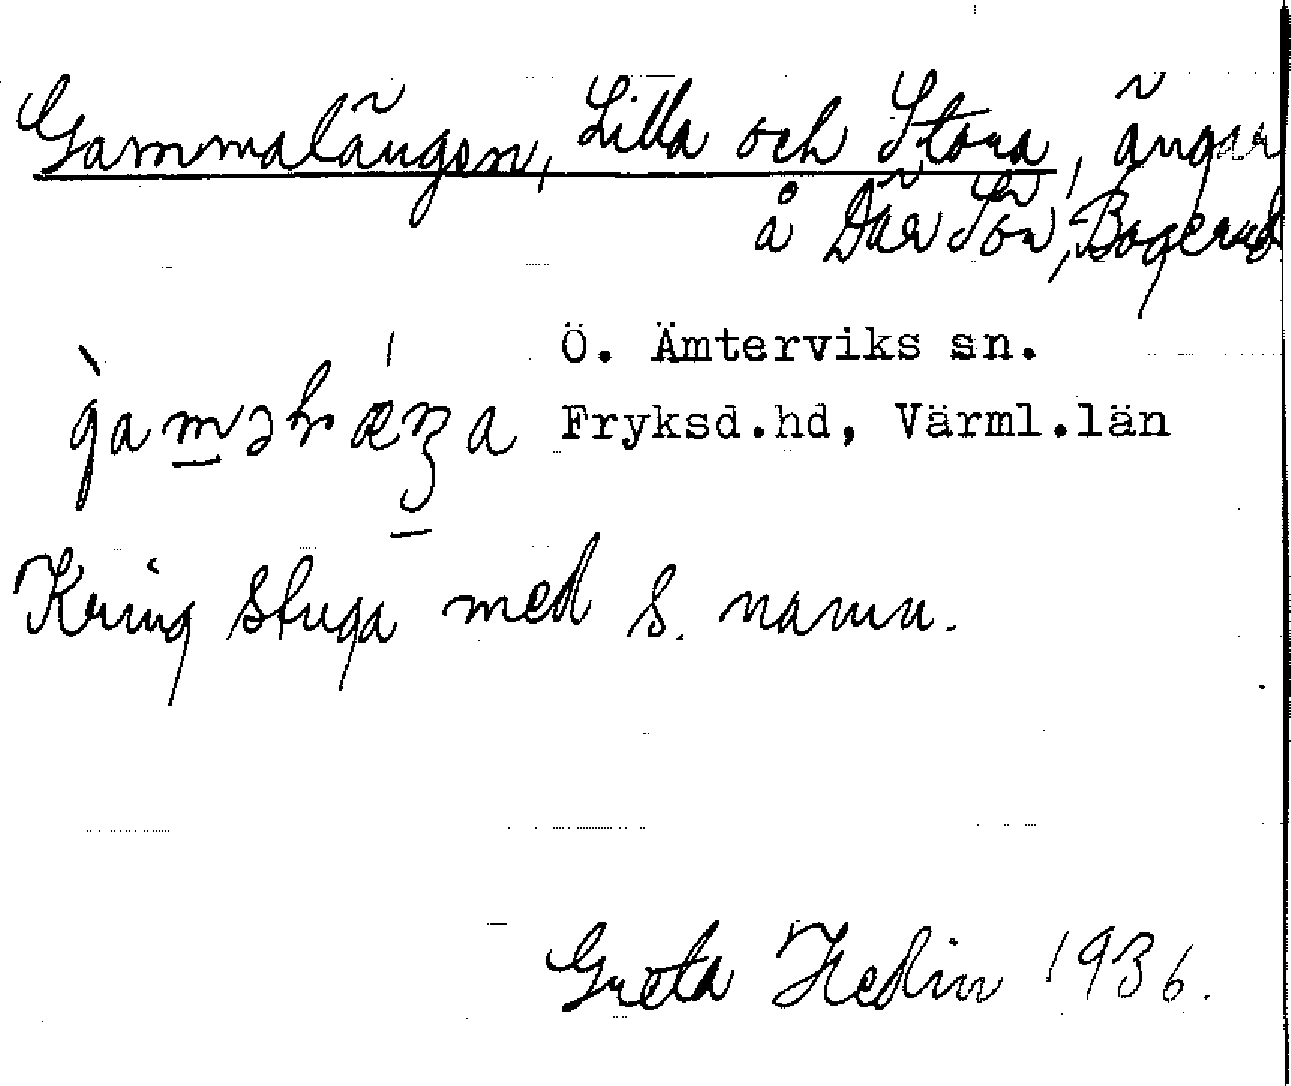 Gammalängen, Lilla och Stora, ängar
å Där Sön, Bogerud
Ö. Ämterviks sn.
Fryksd.hd, Värml.län
Kring stuga med s. namn.
Greta Hedin 1936.